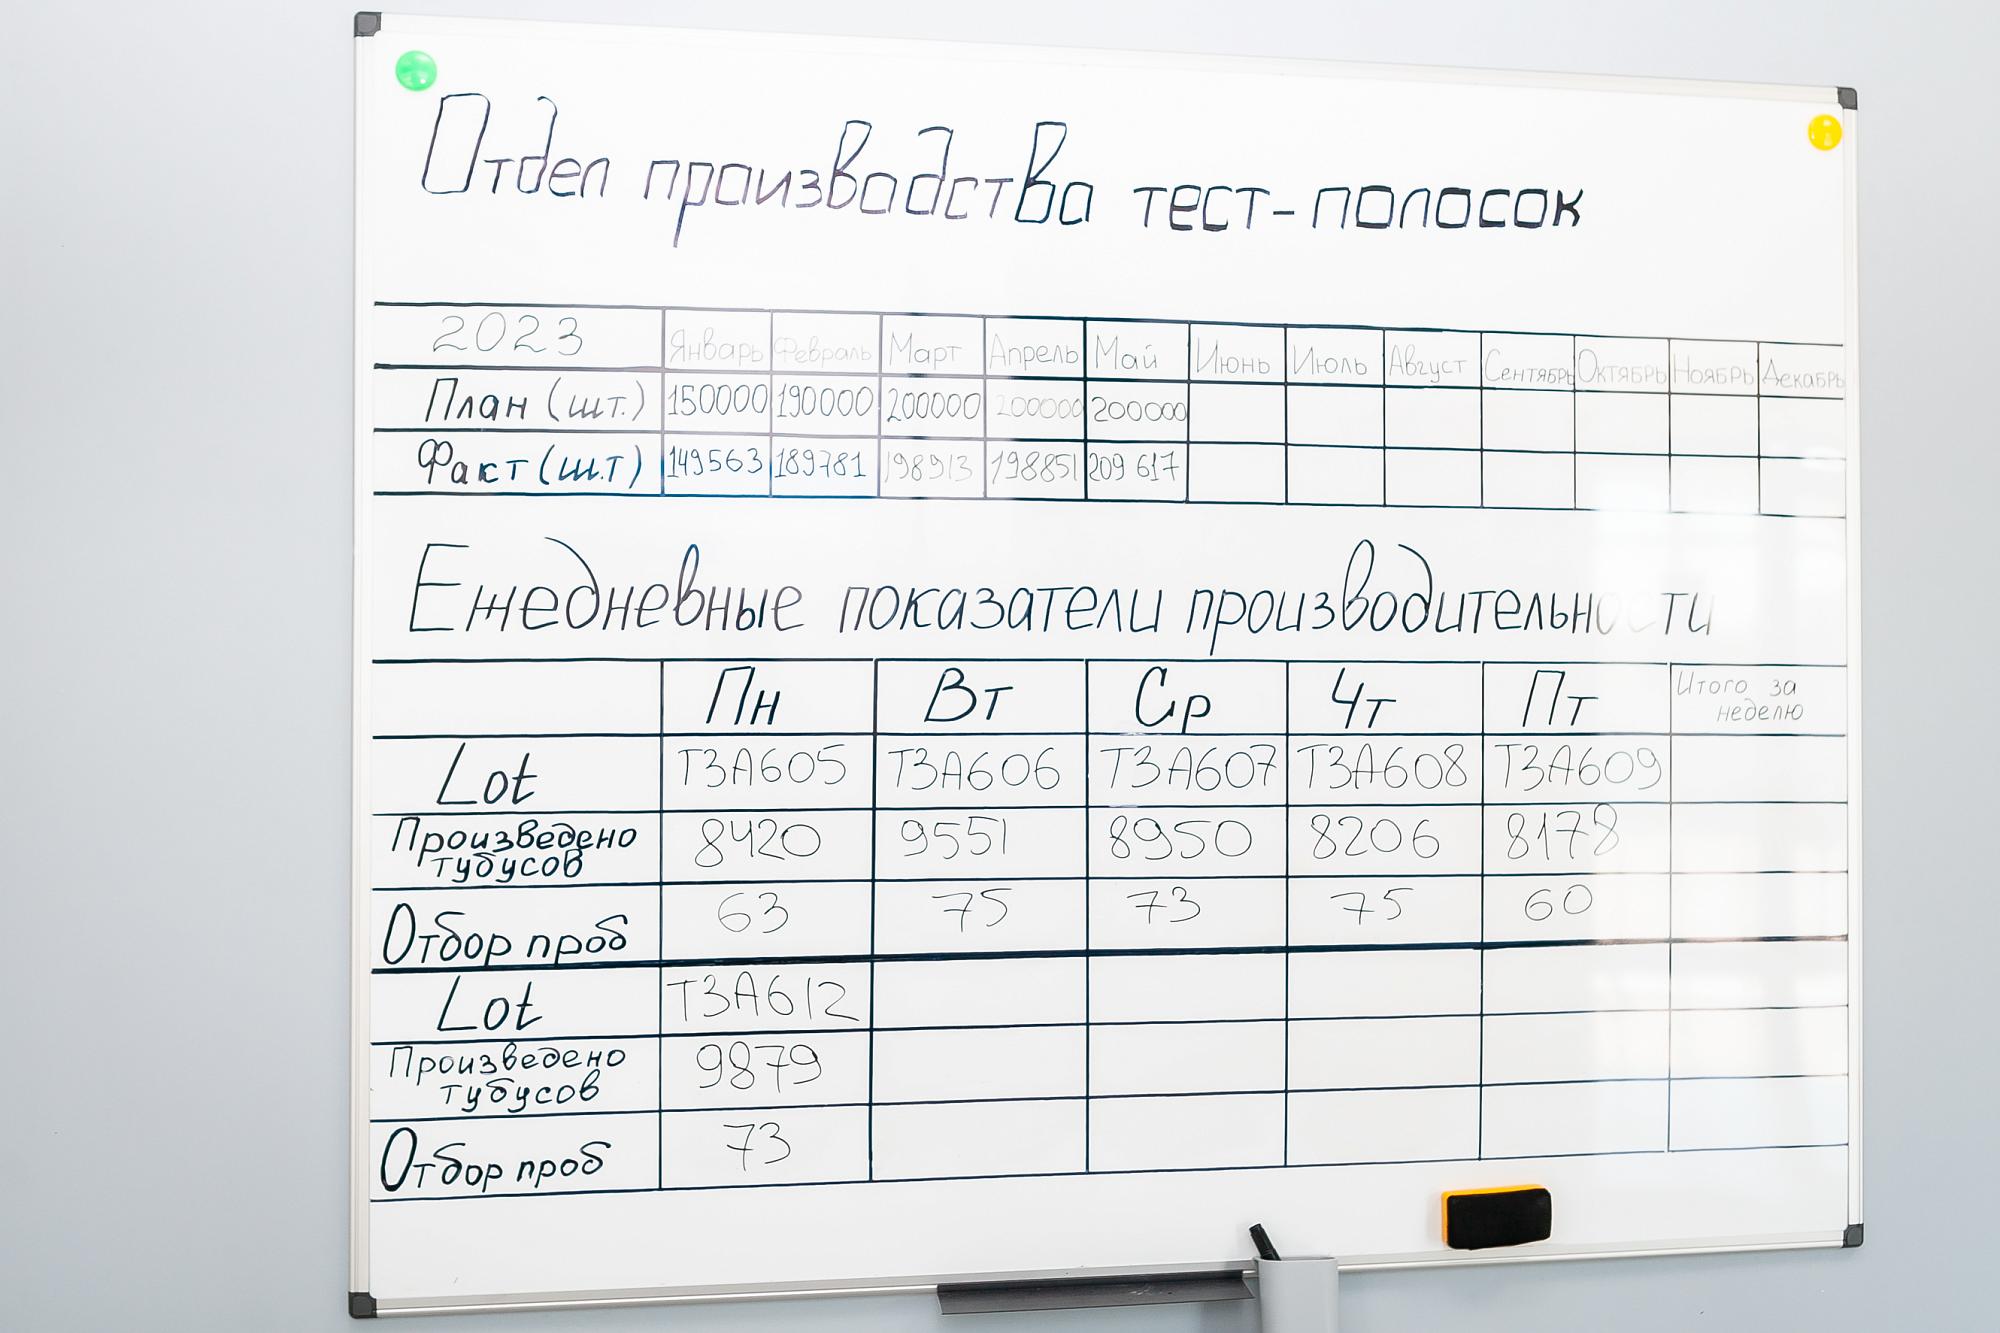 Отдел производства тест-полосок
2023 Январь Февраль Март Апрель Май Июнь Июль Август Сентябрь Октябрь Ноябрь Декабрь
План (шт.) 150000 190000 200000 200000 200000
Факт (ш.т) 149563 189781 198913 198851 209 617
Ежедневные показатели производительности
Пн Вт Ср Чт Пт Итого за
неделю
Lot T3A605 T3A606 T3A607 T3A608 T3A609
Произведено
тубусов 8420 9551 8950 8206 8178
Отбор проб 63 75 73 75 60
Lot T3A612
Произведено
тубусов 9879
Отбор проб 73